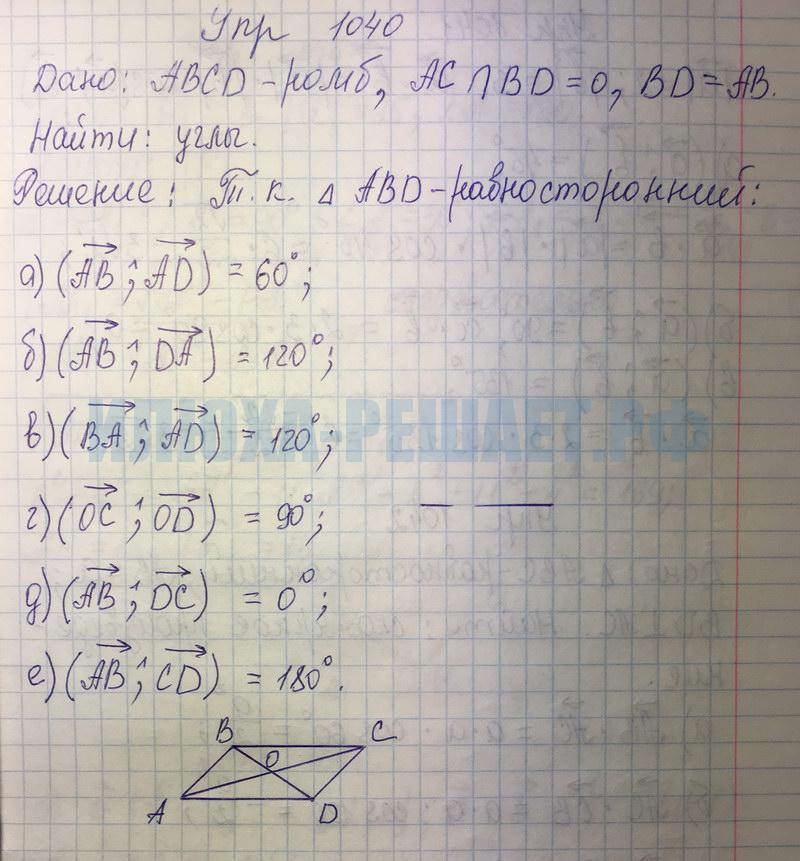 Упр 1040
Дано: ABCD - ромб, AC ∩ BD = O, BD = AB.
Найти: углы.
Решение: Т.к. △ ABD - равносторонний:
а) (AB ^; AD) = 60°;
б) (AB ^; DA) = 120°;
в) (BA ^; AD) = 120°;
г) (OC ^; OD) = 90°;
д) (AB ^; DC) = 0°;
е) (AB ^; CD) = 180°.
ИЛЮХА-РЕШАЕТ.РФ
B C
O
A D